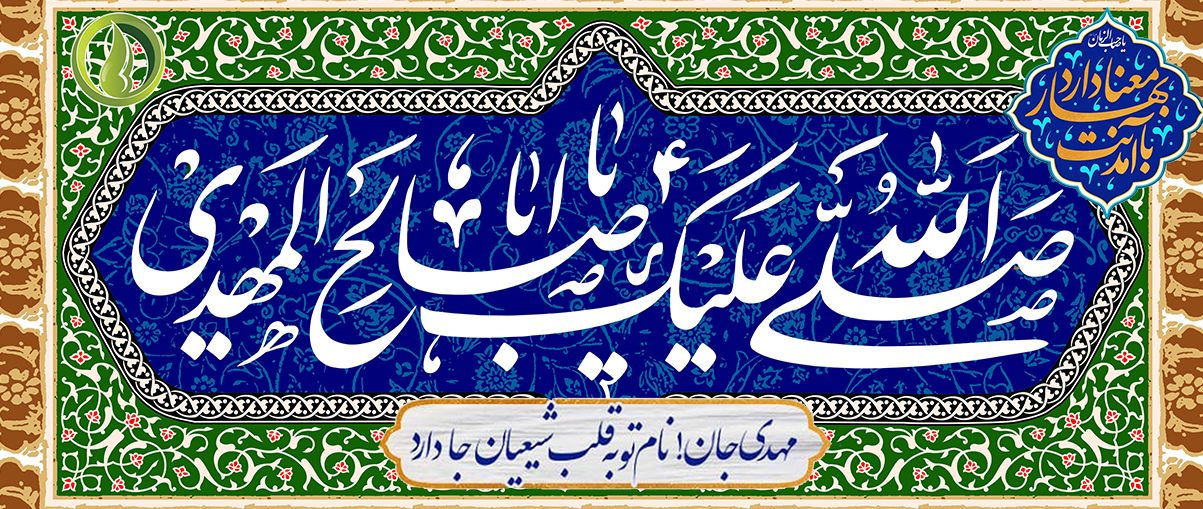 یا صاحب الزمان
بهار معنا دارد
با آمدنت
صلی الله علیک یا اباصالح المهدی
مهدی جان! نام تو به قلب شیعیان جا دارد